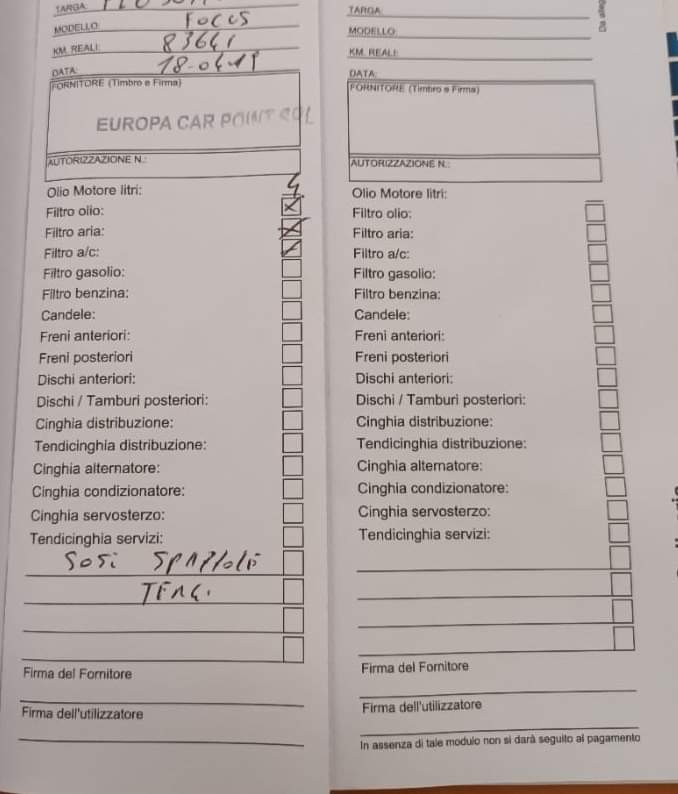 TARGA:
MODELLO: Focus
KM. REALI: 83641
DATA: 18-04-19
FORNITORE (Timbro e Firma)
EUROPA CAR POINT SRL
AUTORIZZAZIONE N.:
Olio Motore litri: 4
Filtro olio: X
Filtro aria: X
Filtro a/c:
Filtro gasolio:
Filtro benzina:
Candele:
Freni anteriori:
Freni posteriori
Dischi anteriori:
Dischi / Tamburi posteriori:
Cinghia distribuzione:
Tendicinghia distribuzione:
Cinghia alternatore:
Cinghia condizionatore:
Cinghia servosterzo:
Tendicinghia servizi:
Firma del Fornitore
Firma dell'utilizzatore
TARGA:
MODELLO:
KM. REALI:
DATA:
FORNITORE (Timbro e Firma)
AUTORIZZAZIONE N.:
Olio Motore litri:
Filtro olio:
Filtro aria:
Filtro a/c:
Filtro gasolio:
Filtro benzina:
Candele:
Freni anteriori:
Freni posteriori
Dischi anteriori:
Dischi / Tamburi posteriori:
Cinghia distribuzione:
Tendicinghia distribuzione:
Cinghia alternatore:
Cinghia condizionatore:
Cinghia servosterzo:
Tendicinghia servizi:
Firma del Fornitore
Firma dell'utilizzatore
In assenza di tale modulo non si darà seguito al pagamento
Da alleg